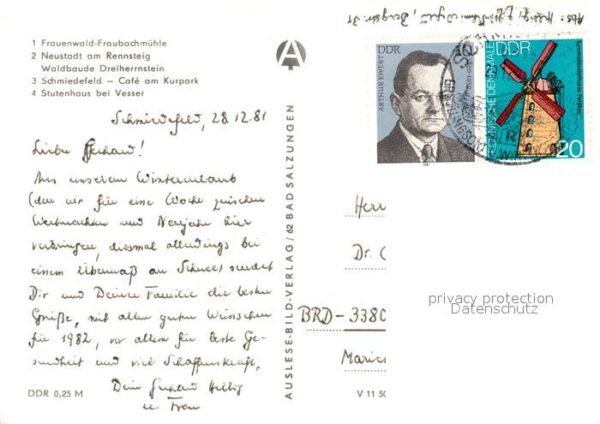 1 Frauenwald-Fraubachmühle
2 Neustadt am Rennsteig
Waldbaude Dreiherrnstein
3 Schmiedefeld – Café am Kurpark
4 Stutenhaus bei Vesser
Schmiedefeld, 28.12.81
Lieber Gerhard!
Aus unserem Winterurlaub
(den wir für eine Woche zwischen
Weihnachten und Neujahr hier
verbringen, diesmal allerdings bei
einem Übermaß an Schnee) sendet
Dir und Deiner Familie die besten
Grüße, mit allen guten Wünschen
für 1982, vor allem für beste Ge-
sundheit und viel Schaffenskraft,
Dein
u. Frau
DDR 0,25 M
AUSLESE-BILD-VERLAG/62 BAD SALZUNGEN
V 11 50
DDR
10
ARTHUR EWERT
DDR
20
Abs:
Herr
Dr. C
BRD-3380
privacy protection
Datenschutz